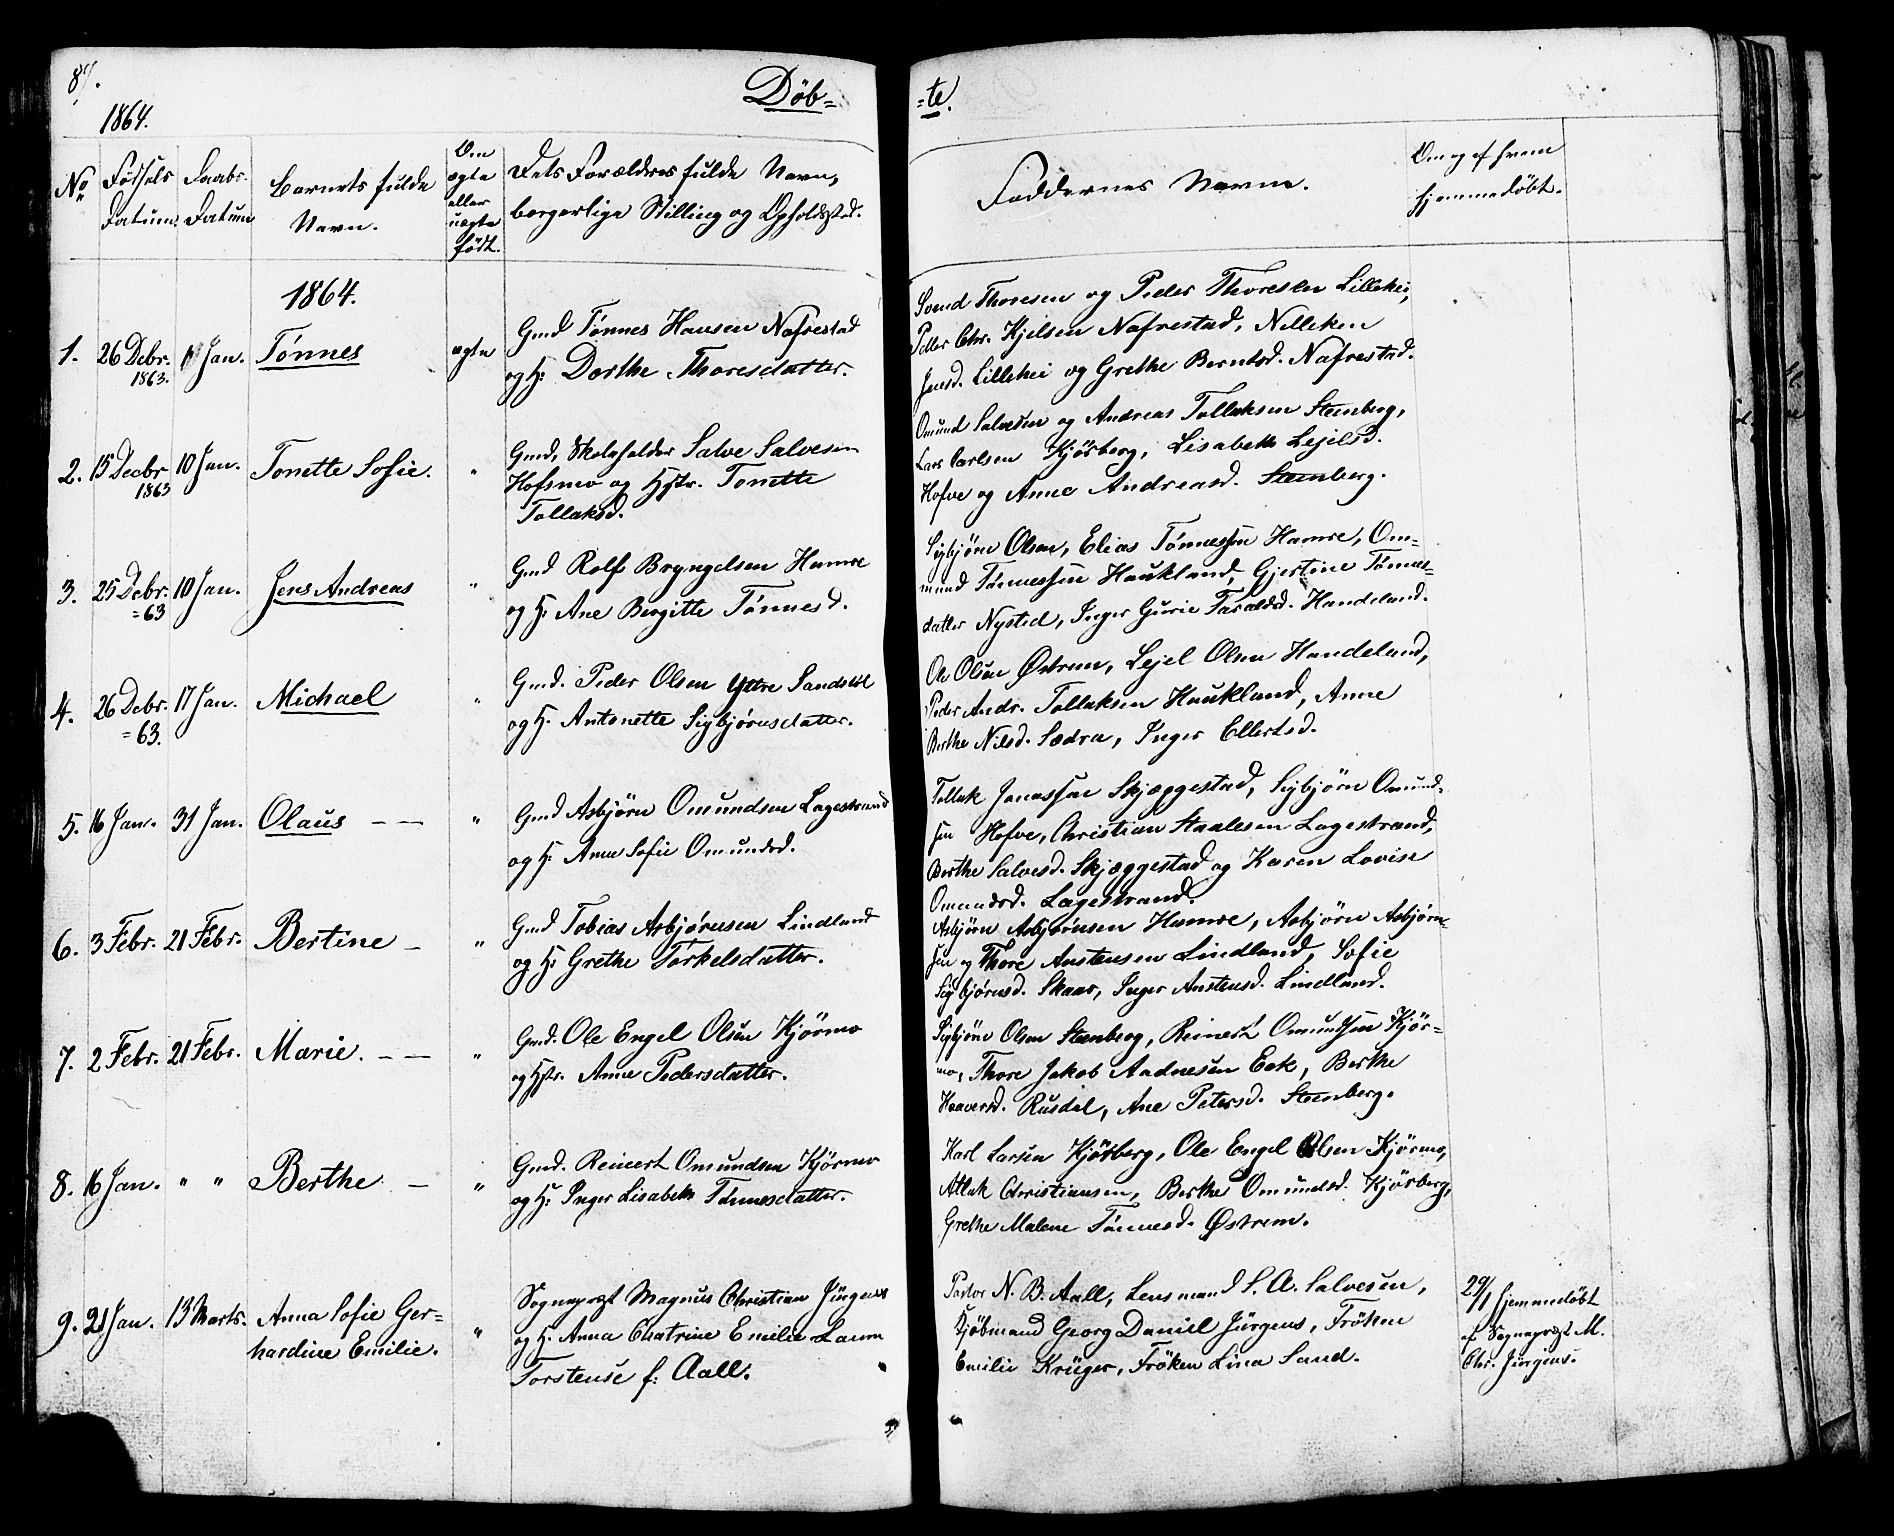 87.
1864.
Döb=
=te.
No
Fødsels
Datum.
Daabs.
Datum
Barnets fulde
Navn.
Om
ægte
eller
uægte
født.
Dets Forældres fulde Navn,
borgerlige Stilling og Opholdssted.
Faddernes Navne.
Om og af hvem
hjemmedøbt.
1864.
1. 26 Debr. Jan. Tönnes ægte
1863.
Gmd Tönnes Hansen Nafrestad
og H. Dorthe Thoresdatter.
Svend Thoresen og Peder Thoresen Lillehei,
Peder Chr. Kjelsen Nafrestad, Nilleken
Jensd. Lillehei og Grethe Berntsd. Nafrestad.
2. 15 Decbr 10 Jan. Tonette Sofie. "
1863
Gmd, Skoleholder Salve Salvesen
Hofsmo og Hstr. Tonette
Tollaksd.
Omund Salvesen og Andreas Tollaksen Steenberg,
Lars Carlsen Kjörberg, Lisabeth Lejelsd.
Hofve og Anne Andreasd. Steenberg.
3. 25 Debr. 10 Jan. Jens Andreas "
=63
Gmd Rolf Bryngelsen Hamre
og H. Ane Birgitte Tönnesd.
Sigbjörn Olsen, Elias Tönnessen Hamre, Om=
mund Tönnessen Haukland, Gjertine Tönnes=
datter Nysted, Inger Gurie Taraldsd. Handeland.
4. 26 Debr. 17 Jan. Michael "
=63.
Gmd. Peder Olsen Yttre Sandsöl
og H. Antonette Sigbjörnsdatter.
Ole Olsen Østrem, Lejel Olsen Handeland,
Peder Andr. Tollaksen Haukland, Anne
Berthe Nilsd. Sædra, Inger Ellertsd.
5. 16 Jan. 31 Jan. Olaus — — "
Gmd Asbjörn Omundsen Lagestrand
og H. Anne Sofie Omundsd.
Tollak Jonassen Skjæggestad, Sigbjörn Omund-
sen Hofve, Christian Staalesen Lagestrand,
Berthe Salvesd. Skjæggestad og Karen Lovise
Omundsd. Lagestrand.
6. 3 Febr. 21 Febr. Bertine — "
Gmd Tobias Asbjörnsen Lindland
og H. Grethe Torkelsdatter.
Asbjörn Asbjörnsen Hamre, Asbjörn Asbjörn=
sen og Thore Anstensen Lindland, Sofie
Sigbjörnsd. Skaar, Inger Anstensd. Lindland.
7. 2 Febr. 21 Febr. Marie. — — "
Gmd. Ole Engel Olsen Kjörmo
og Hstr. Anne Pedersdatter.
Sigbjörn Olsen Steenberg, Reinert Omundsen Kjör=
mo, Thore Jakob Aadnesen Eek, Berthe
Haaversd. Rusdal, Ane Petersd. Steenberg.
8. 16 Jan. " " Berthe — "
Gmd. Reinert Omundsen Kjörmo
og H. Inger Lisabeth Tönnesdatter.
Karl Larsen Kjörberg, Ole Engel Olsen Kjörmo,
Atlak Christiansen, Berthe Omundsd. Kjörberg,
Grethe Malene Tönnesd. Østrem.
9. 21 Jan. 13 Marts. Anna Sofie Ger=
hardine Emilie. "
Sogneprest Magnus Christian Jürgens
og H. Anna Chatrine Emilie Laura
Torstense f: Aall.
Pastor N. B. Aall, Lensmand S. A. Salvesen,
Kjöbmand Georg Daniel Jürgens, Fröken
Emilie Krüger, Fröken Lina Sand.
29/1 hjemmedøbt
af Sogneprest M.
Chr. Jürgens.